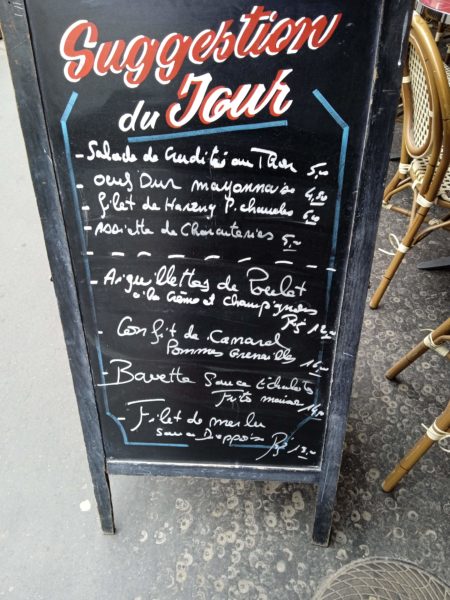 Suggestion
du Jour
- Salade de Crudités au Thon 5,00
- oeuf Dur mayonnaise 4,80
- filet de Hareng P. chaudes
- Assiette de Charcuteries 5,00
- Aiguillettes de Poulet
à la Crème et champignons Riz
- Confit de Canard
Pommes Grenailles
- Bavette Sauce Echalote
Frite maison 14,00
- Filet de merlu
sauce Dieppoise Riz 13,00